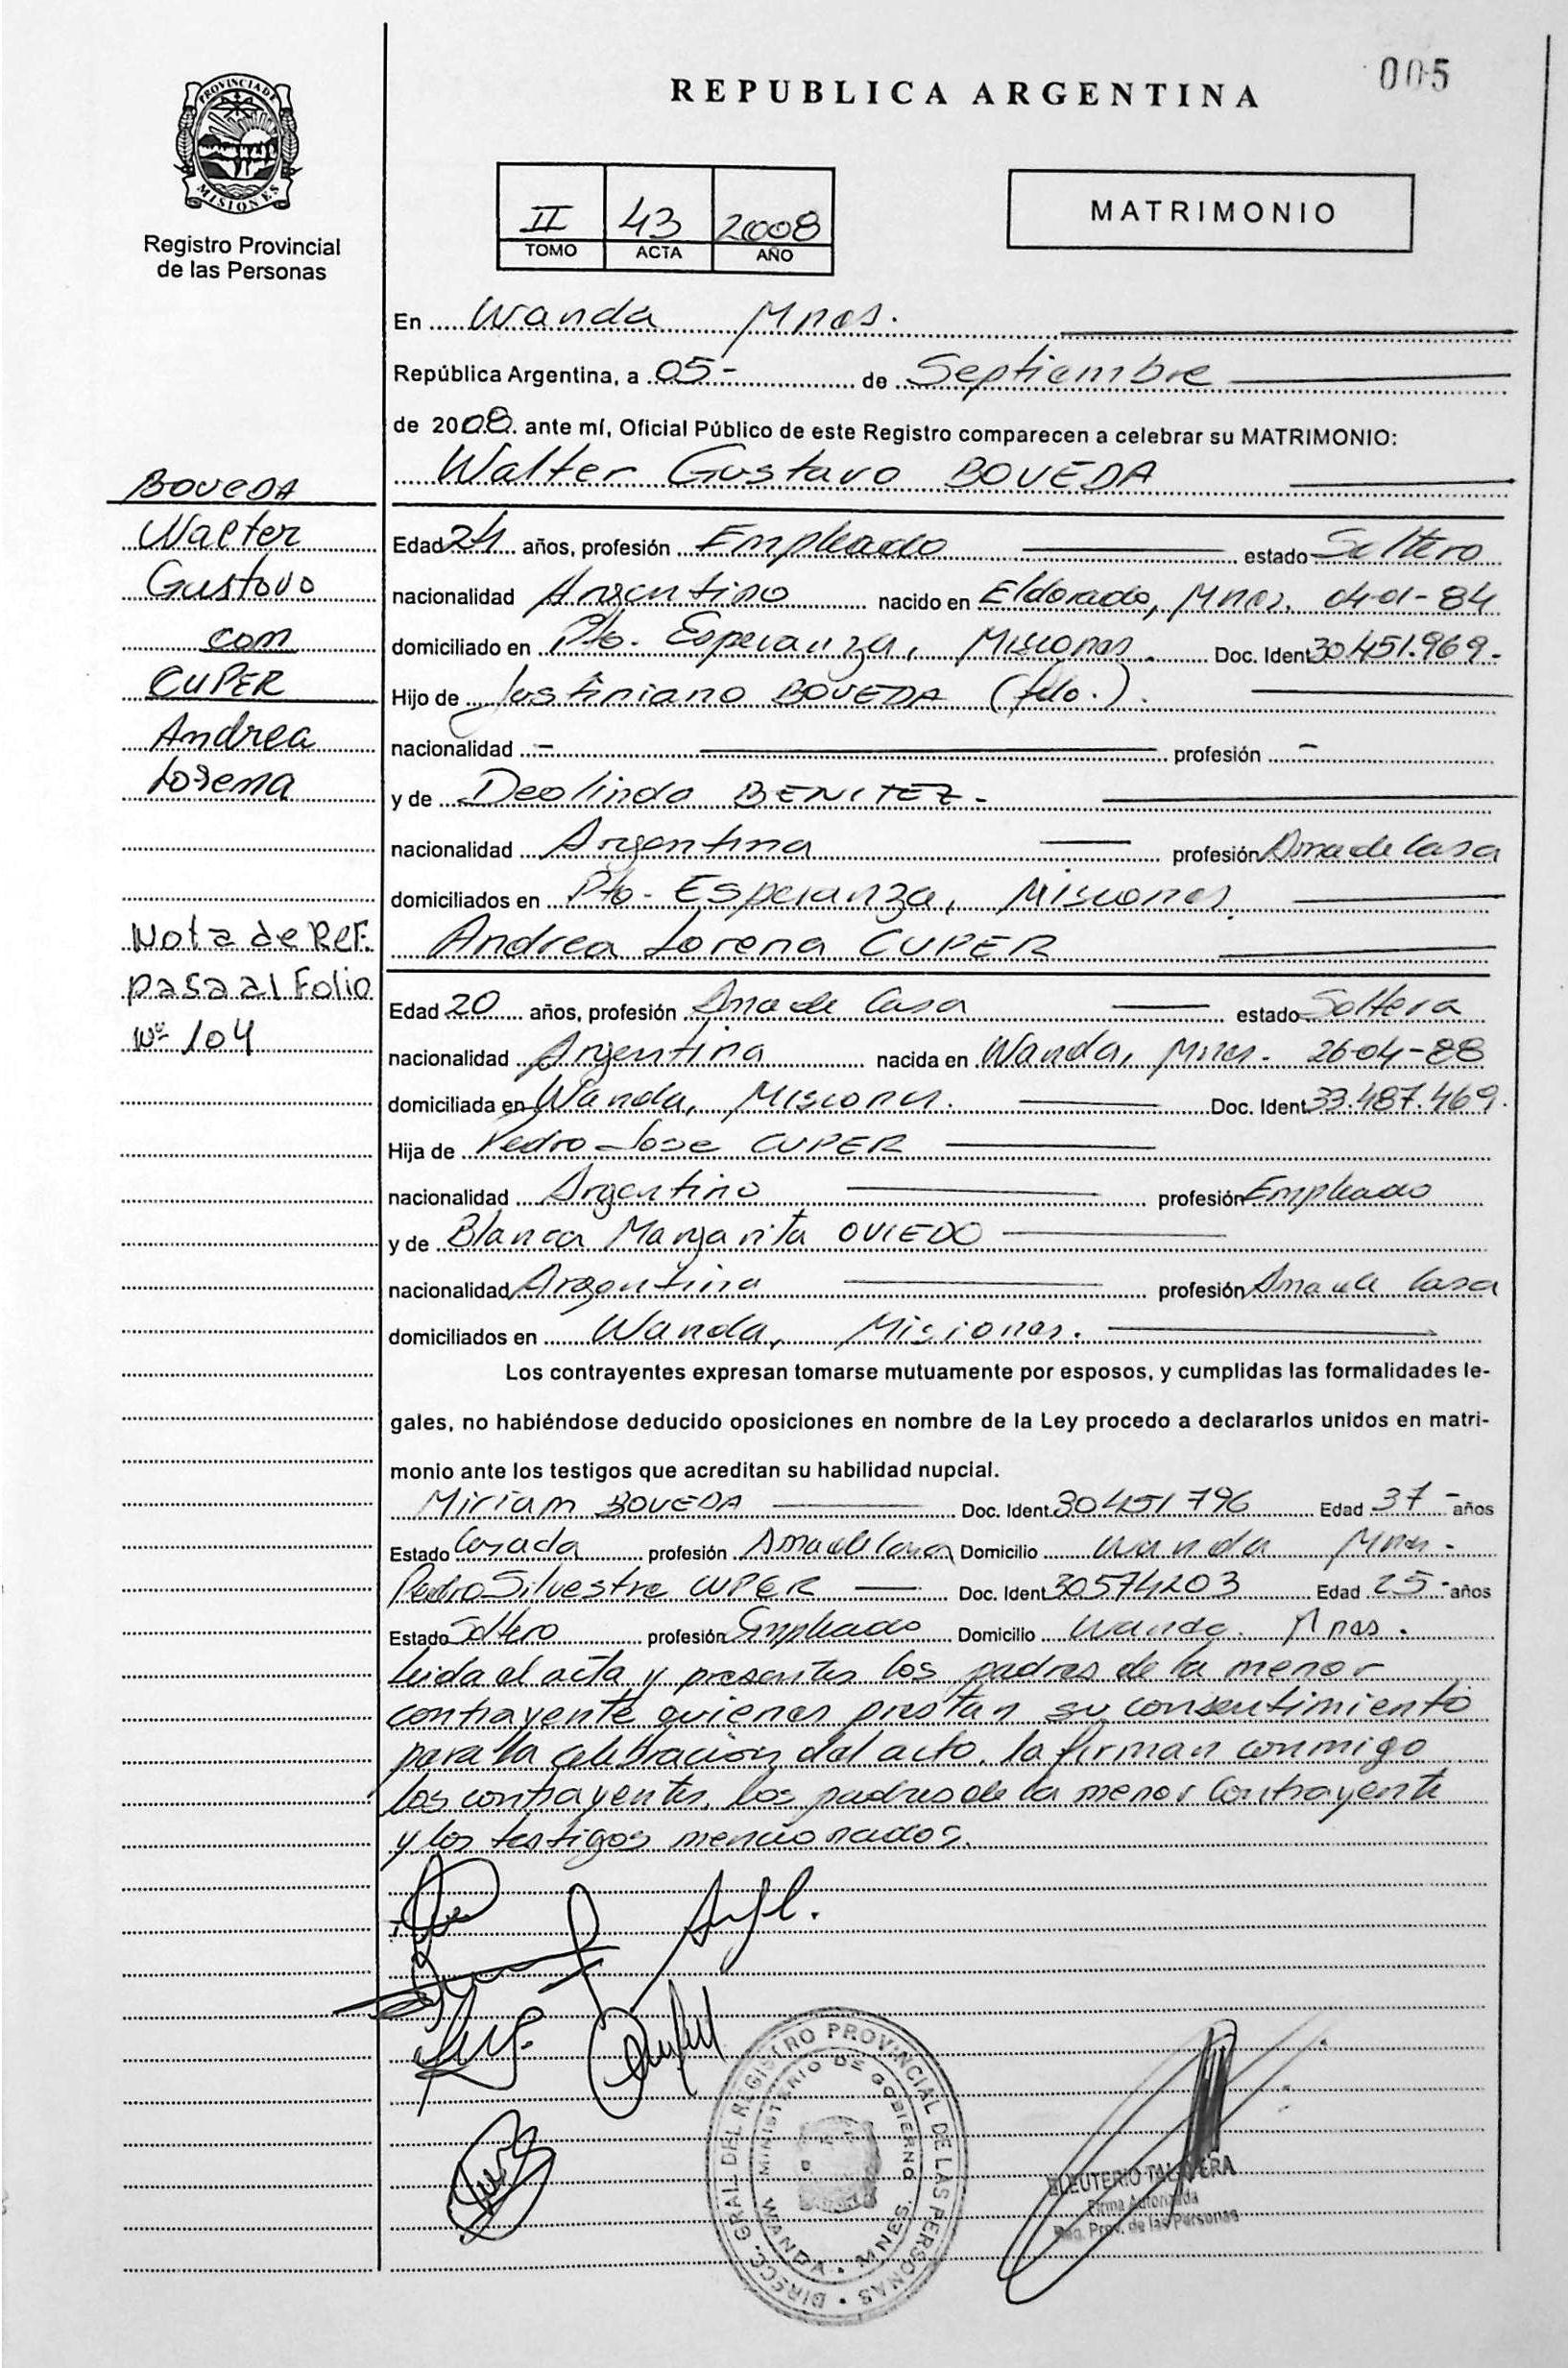 005
REPUBLICA ARGENTINA
PROVINCIA DE
MISIONES
Registro Provincial
de las Personas
II 43 2008
TOMO ACTA AÑO
MATRIMONIO
En Wanda Mnes.
República Argentina, a 05- de Septiembre
de 2008. ante mí, Oficial Público de este Registro comparecen a celebrar su MATRIMONIO:
Walter Gustavo BOVEDA
BOVEDA
Walter
Gustavo
con
CUPER
Andrea
Lorena
Nota de Ref.
pasa al Folio
Nº 104
Edad 24 años, profesión Empleado estado Soltero
nacionalidad Argentino nacido en Eldorado, Mnes. 04-01-84
domiciliado en Pto. Esperanza, Misiones. Doc. Ident 30.451.969-
Hijo de Justiniano BOVEDA (fdo.).
nacionalidad - profesión -
y de Deolinda BENITEZ-
nacionalidad Argentina profesión Ama de Casa
domiciliados en Pto- Esperanza, Misiones.
Andrea Lorena CUPER
Edad 20 años, profesión Ama de Casa estado Soltera
nacionalidad Argentina nacida en Wanda, Mnes. 26-04-88
domiciliada en Wanda, Misiones. Doc. Ident 33.487.469.
Hija de Pedro Jose CUPER
nacionalidad Argentino profesión Empleado
y de Blanca Margarita OVIEDO
nacionalidad Argentina profesión Ama de Casa
domiciliados en Wanda, Misiones.
Los contrayentes expresan tomarse mutuamente por esposos, y cumplidas las formalidades le-
gales, no habiéndose deducido oposiciones en nombre de la Ley procedo a declararlos unidos en matri-
monio ante los testigos que acreditan su habilidad nupcial.
Miriam BOVEDA Doc. Ident 30451796 Edad 37- años
Estado Casada profesión Ama de Casa Domicilio Wanda Mnes.
Pedro Silvestre CUPER Doc. Ident 30574203 Edad 25- años
Estado Soltero profesión Empleado Domicilio Wanda. Mnes.
Leida el acta y presentes los padres de la menor
contrayente quienes prestan su consentimiento
para la celebración del acto, la firman conmigo
los contrayentes, los padres de la menor Contrayente
y los testigos mencionados.
DIRECC. GRAL. DEL REGISTRO PROVINCIAL DE LAS PERSONAS
MINISTERIO DE GOBIERNO
WANDA - MNES.
ELEUTERIO TALAVERA
Firma Autorizada
Reg. Prov. de las Personas